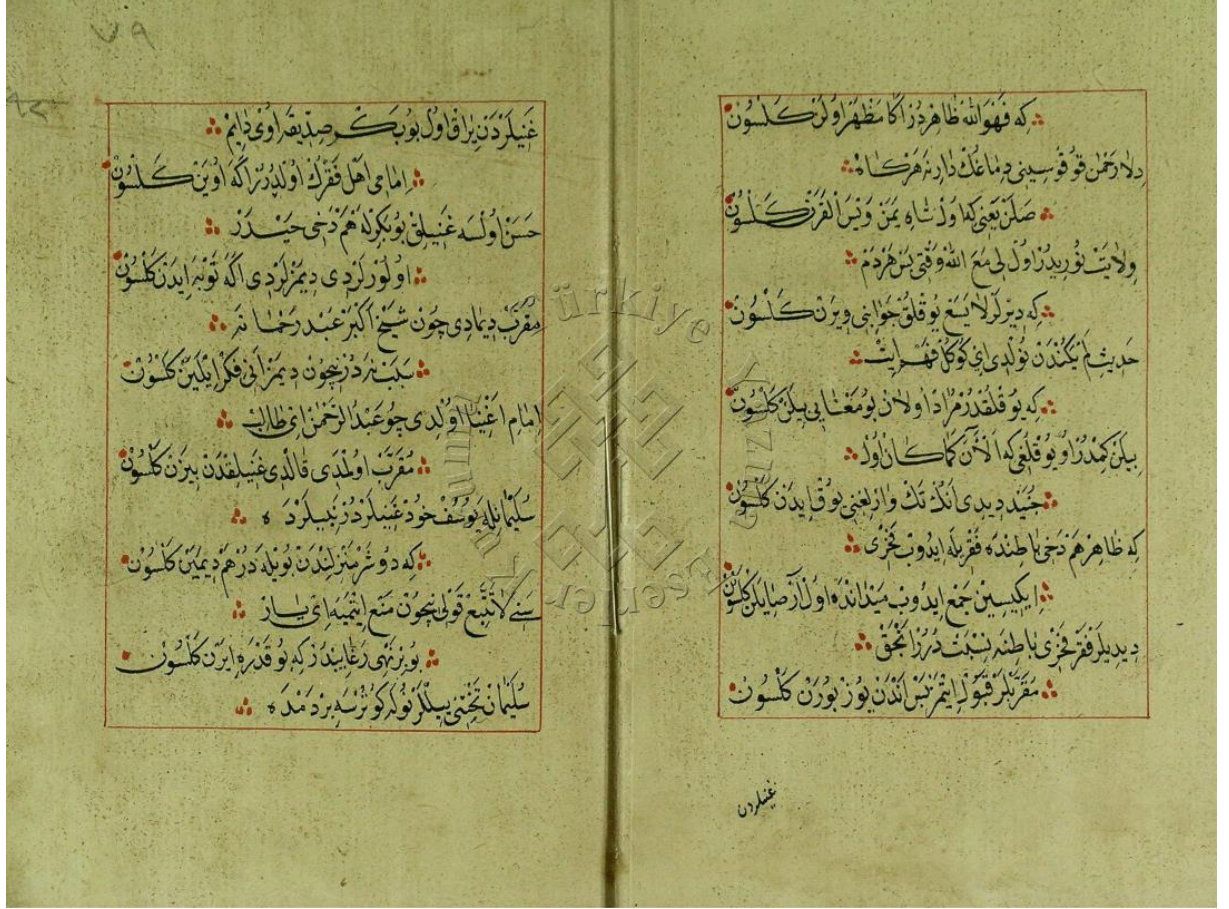 كه فهو الله ظاهردر اكا مظهر اولن كلسون
دلا رحمن قوقوسيني دماغك دارنه هركاه
صلن يعني كه اول شاه يمن ويس القرن كلسون
ولايت نوريدر اول لي مع الله وقتي بس هردم
كه ديرلر لا يسع يوقلق جوابني ويرن كلسون
حديث لم يكندن بولدي اي كوكل فهم ايت
كه يوقلقدر مراد اولان بو معنايي بيلن كلسون
بيلن كمدر او يوقلغي كه الآن كما كان اول
جنيد ديدي انك تك وارلغني يوق ايدن كلسون
كه ظاهر هم دخي باطنده فقريله ايدوب فخري
ايكيسين جمع ايدوب ميدانده اول آز صايلن كلسون
ديديلر فقر فخري باطنه نسبت درر انجق
مقربلر قبول ايتمز بس اندن يوز بورن كلسون
غنيلردن
٧٩
غنيلردن يراق اول بوبكر صديقه اوي دايم
امامي اهل فقرك اولدرر اكه اوين كلسون
حسن اولسه غنيلق بوبكرله هم دخي حيدر
اولورلردي ديمزلردي اكه توبه ايدن كلسون
مقرب ديمادي چون شيخ اكبر عبد رحمانه
سبب نه در نيچون ديمز اني فكر ايلين كلسون
امام اغنيا اولدي چو عبد الرحمن اي طالب
مقرب اولمدي قالدي غنيلقدن بيزن كلسون
سليمانله يوسف خود غنيلردر نبيلرده
كه دوشر منزلندن بويله در هم ديمين كلسون
سني لا تتبع قولي نيچون منع ايتميه اي يار
بويز نهي رغايبدر كه بو قدره ايرن كلسون
سليمان تختني ييللر بوله كوترسه بر دمده